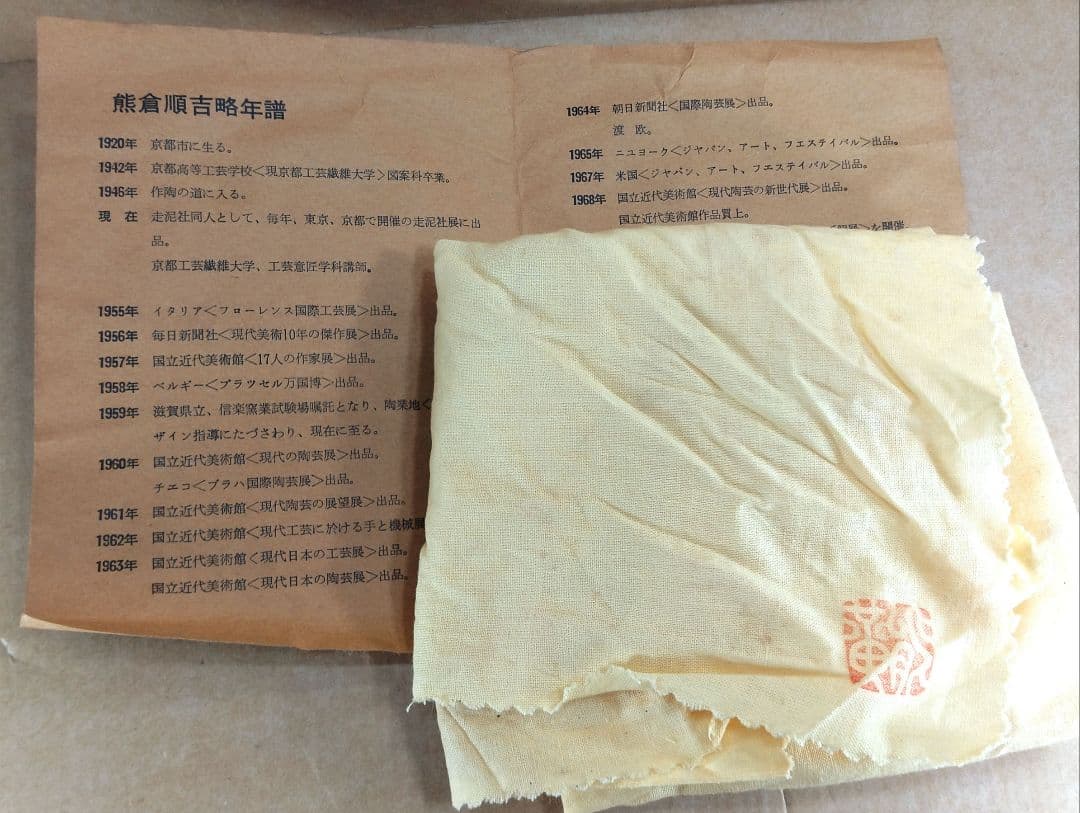 熊倉順吉略年譜
1920年 京都市に生る。
1942年 京都高等工芸学校<現京都工芸繊維大学>図案科卒業。
1946年 作陶の道に入る。
現在 走泥社同人として、毎年、東京、京都で開催の走泥社展に出
品。
京都工芸繊維大学、工芸意匠学科講師。
1955年 イタリア<フローレンス国際工芸展>出品。
1956年 毎日新聞社<現代美術10年の傑作展>出品。
1957年 国立近代美術館<17人の作家展>出品。
1958年 ベルギー<ブラツセル万国博>出品。
1959年 滋賀県立、信楽窯業試験場嘱託となり、陶業地
ザイン指導にたづさわり、現在に至る。
1960年 国立近代美術館<現代の陶芸展>出品。
チエコ<プラハ国際陶芸展>出品。
1961年 国立近代美術館<現代陶芸の展望展>出品。
1962年 国立近代美術館<現代工芸に於ける手と機械展
1963年 国立近代美術館<現代日本の工芸展>出品。
国立近代美術館<現代日本の陶芸展>出品。
1964年 朝日新聞社<国際陶芸展>出品。
渡欧。
1965年 ニユヨーク<ジャパン、アート、フエステイバル>出品。
1967年 米国<ジャパン、アート、フエステイバル>出品。
1968年 国立近代美術館<現代陶芸の新世代展>出品。
国立近代美術館作品買上。
展>を開催